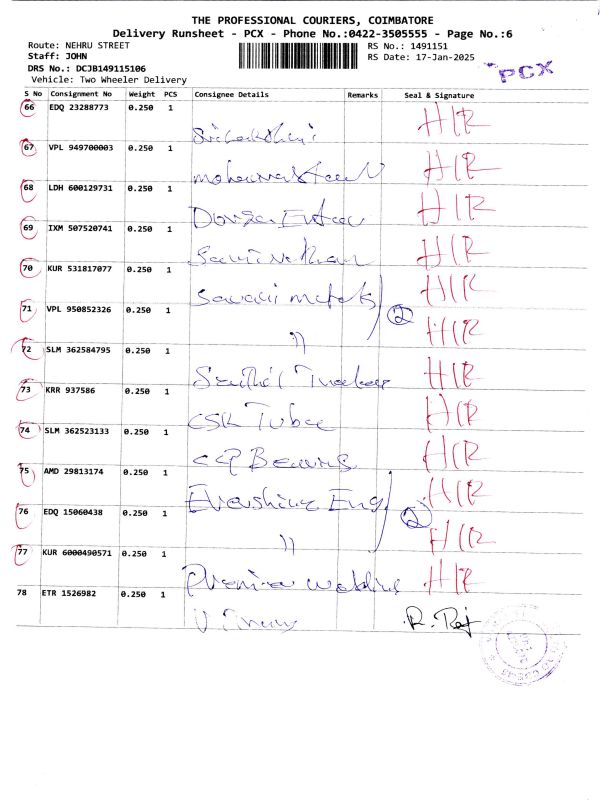 THE PROFESSIONAL COURIERS, COIMBATORE
Delivery Runsheet - PCX - Phone No.:0422-3505555 - Page No.:6
Route: NEHRU STREET RS No.: 1491151
Staff: JOHN RS Date: 17-Jan-2025
DRS No.: DCJB149115106
Vehicle: Two Wheeler Delivery
PCX
S No Consignment No Weight PCS Consignee Details Remarks Seal & Signature
66 EDQ 23288773 0.250 1 HIR
67 VPL 949700003 0.250 1 HIR
68 LDH 600129731 0.250 1 HIR
69 IXM 507520741 0.250 1 HIR
70 KUR 531817077 0.250 1 Savani metals HIR
71 VPL 950852326 0.250 1 〃 2 HIR
72 SLM 362584795 0.250 1 HIR
73 KRR 937586 0.250 1 CSK Tubee HIR
74 SLM 362523133 0.250 1 HIR
75 AMD 29813174 0.250 1 Evershine Eng HIR
76 EDQ 15060438 0.250 1 〃 2 HIR
77 KUR 6000490571 0.250 1 HIR
78 ETR 1526982 0.250 1 R. Raj